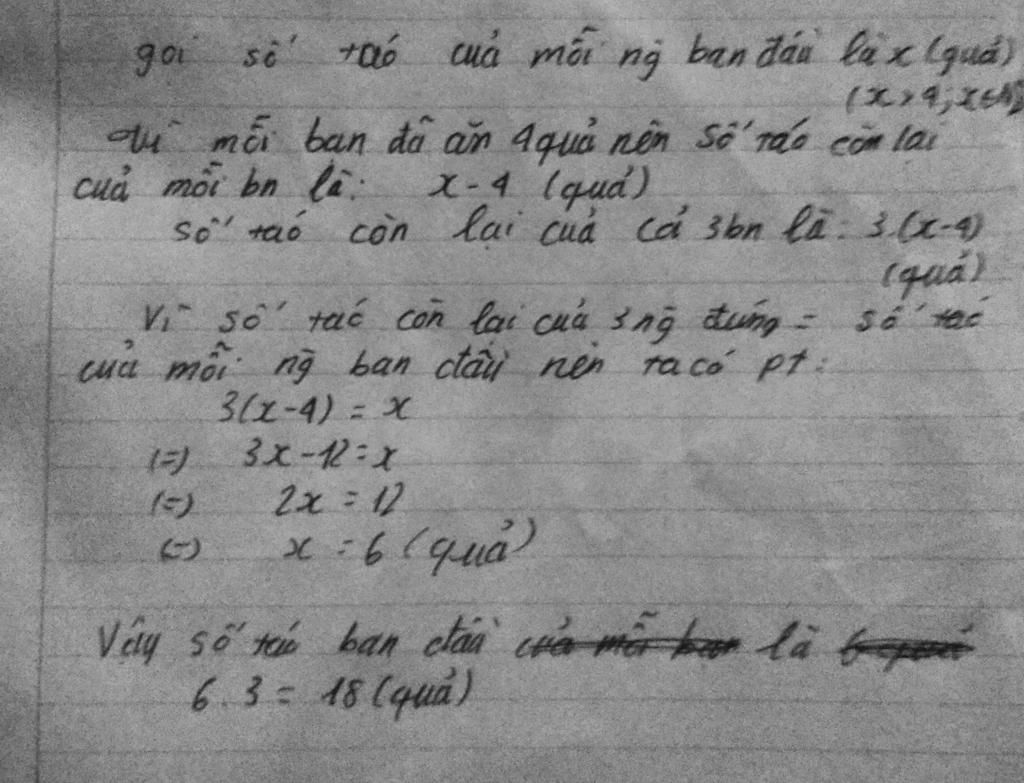 gọi số táo của mỗi ng ban đầu là x (quả)
(x > 4; x ∈ N)
Vì mỗi bạn đã ăn 4 quả nên số táo còn lại
của mỗi bn là: x - 4 (quả)
số táo còn lại của cả 3 bn là: 3.(x-4)
(quả)
Vì số táo còn lại của 3 ng đúng = số táo
của mỗi ng ban đầu nên ta có pt:
3(x-4) = x
(=) 3x - 12 = x
(=) 2x = 12
(=) x = 6 (quả)
Vậy số táo ban đầu là
6.3 = 18 (quả)